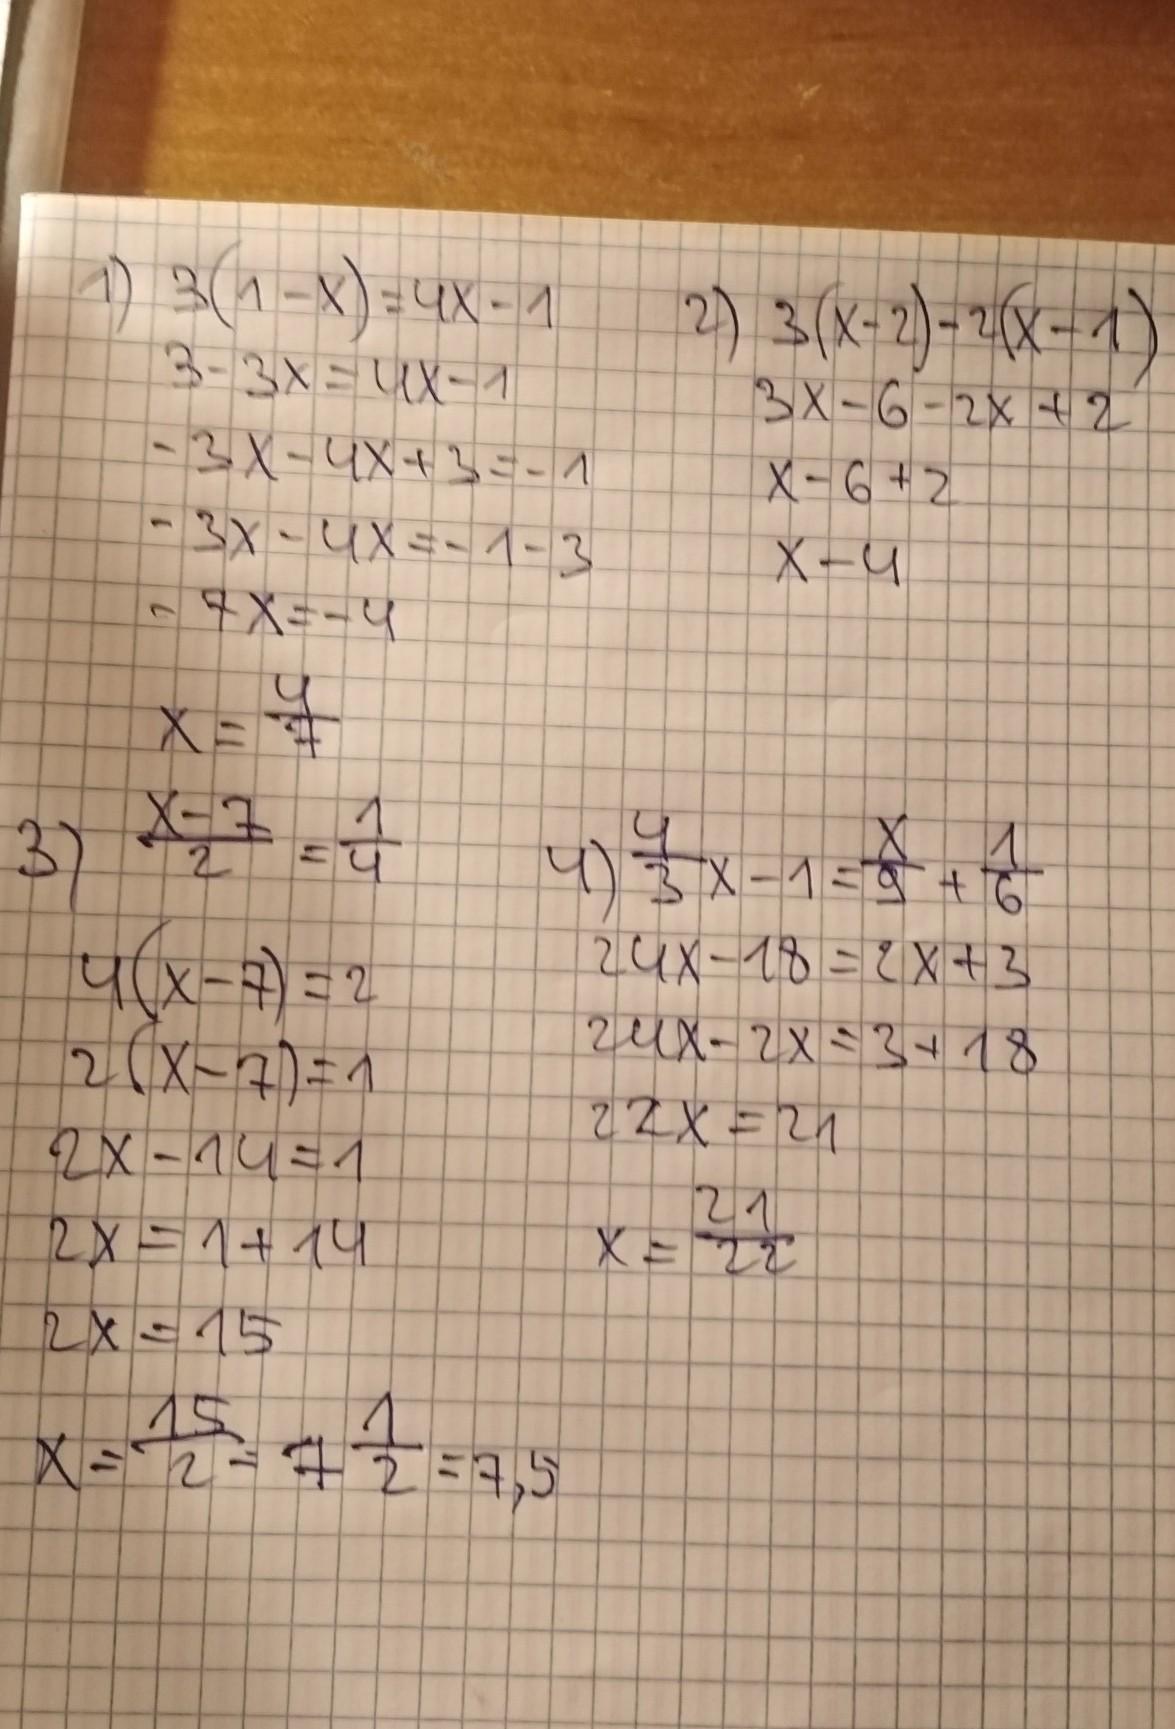 1) 3(1-x)=4x-1
3-3x=4x-1
-3x-4x+3=-1
-3x-4x=-1-3
-7x=-4
x=4/7
2) 3(x-2)-2(x-1)
3x-6-2x+2
x-6+2
x-4
3) (x-7)/2=1/4
4(x-7)=2
2(x-7)=1
2x-14=1
2x=1+14
2x=15
x=15/2=7 1/2=7,5
4) 4/3x-1=x/9+1/6
24x-18=2x+3
24x-2x=3+18
22x=21
x=21/22